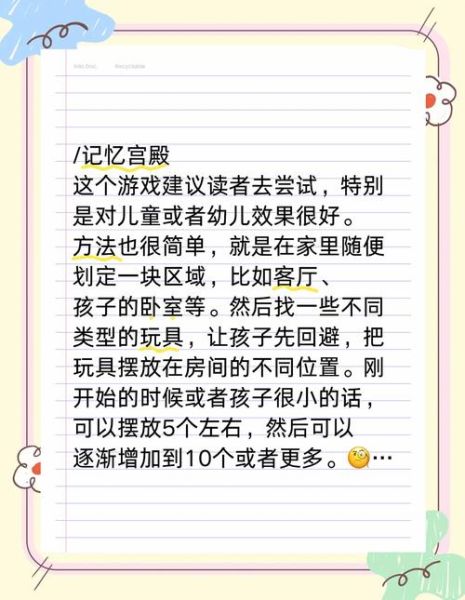 /记忆宫殿
这个游戏建议读者去尝试，特别
是对儿童或者幼儿效果很好。
方法也很简单，就是在家里随便
划定一块区域，比如客厅、
孩子的卧室等。然后找一些不同
类型的玩具，让孩子先回避，把
玩具摆放在房间的不同位置。刚
开始的时候或者孩子很小的话，
可以摆放5个左右，然后可以
逐渐增加到10个或者更多。🧐…